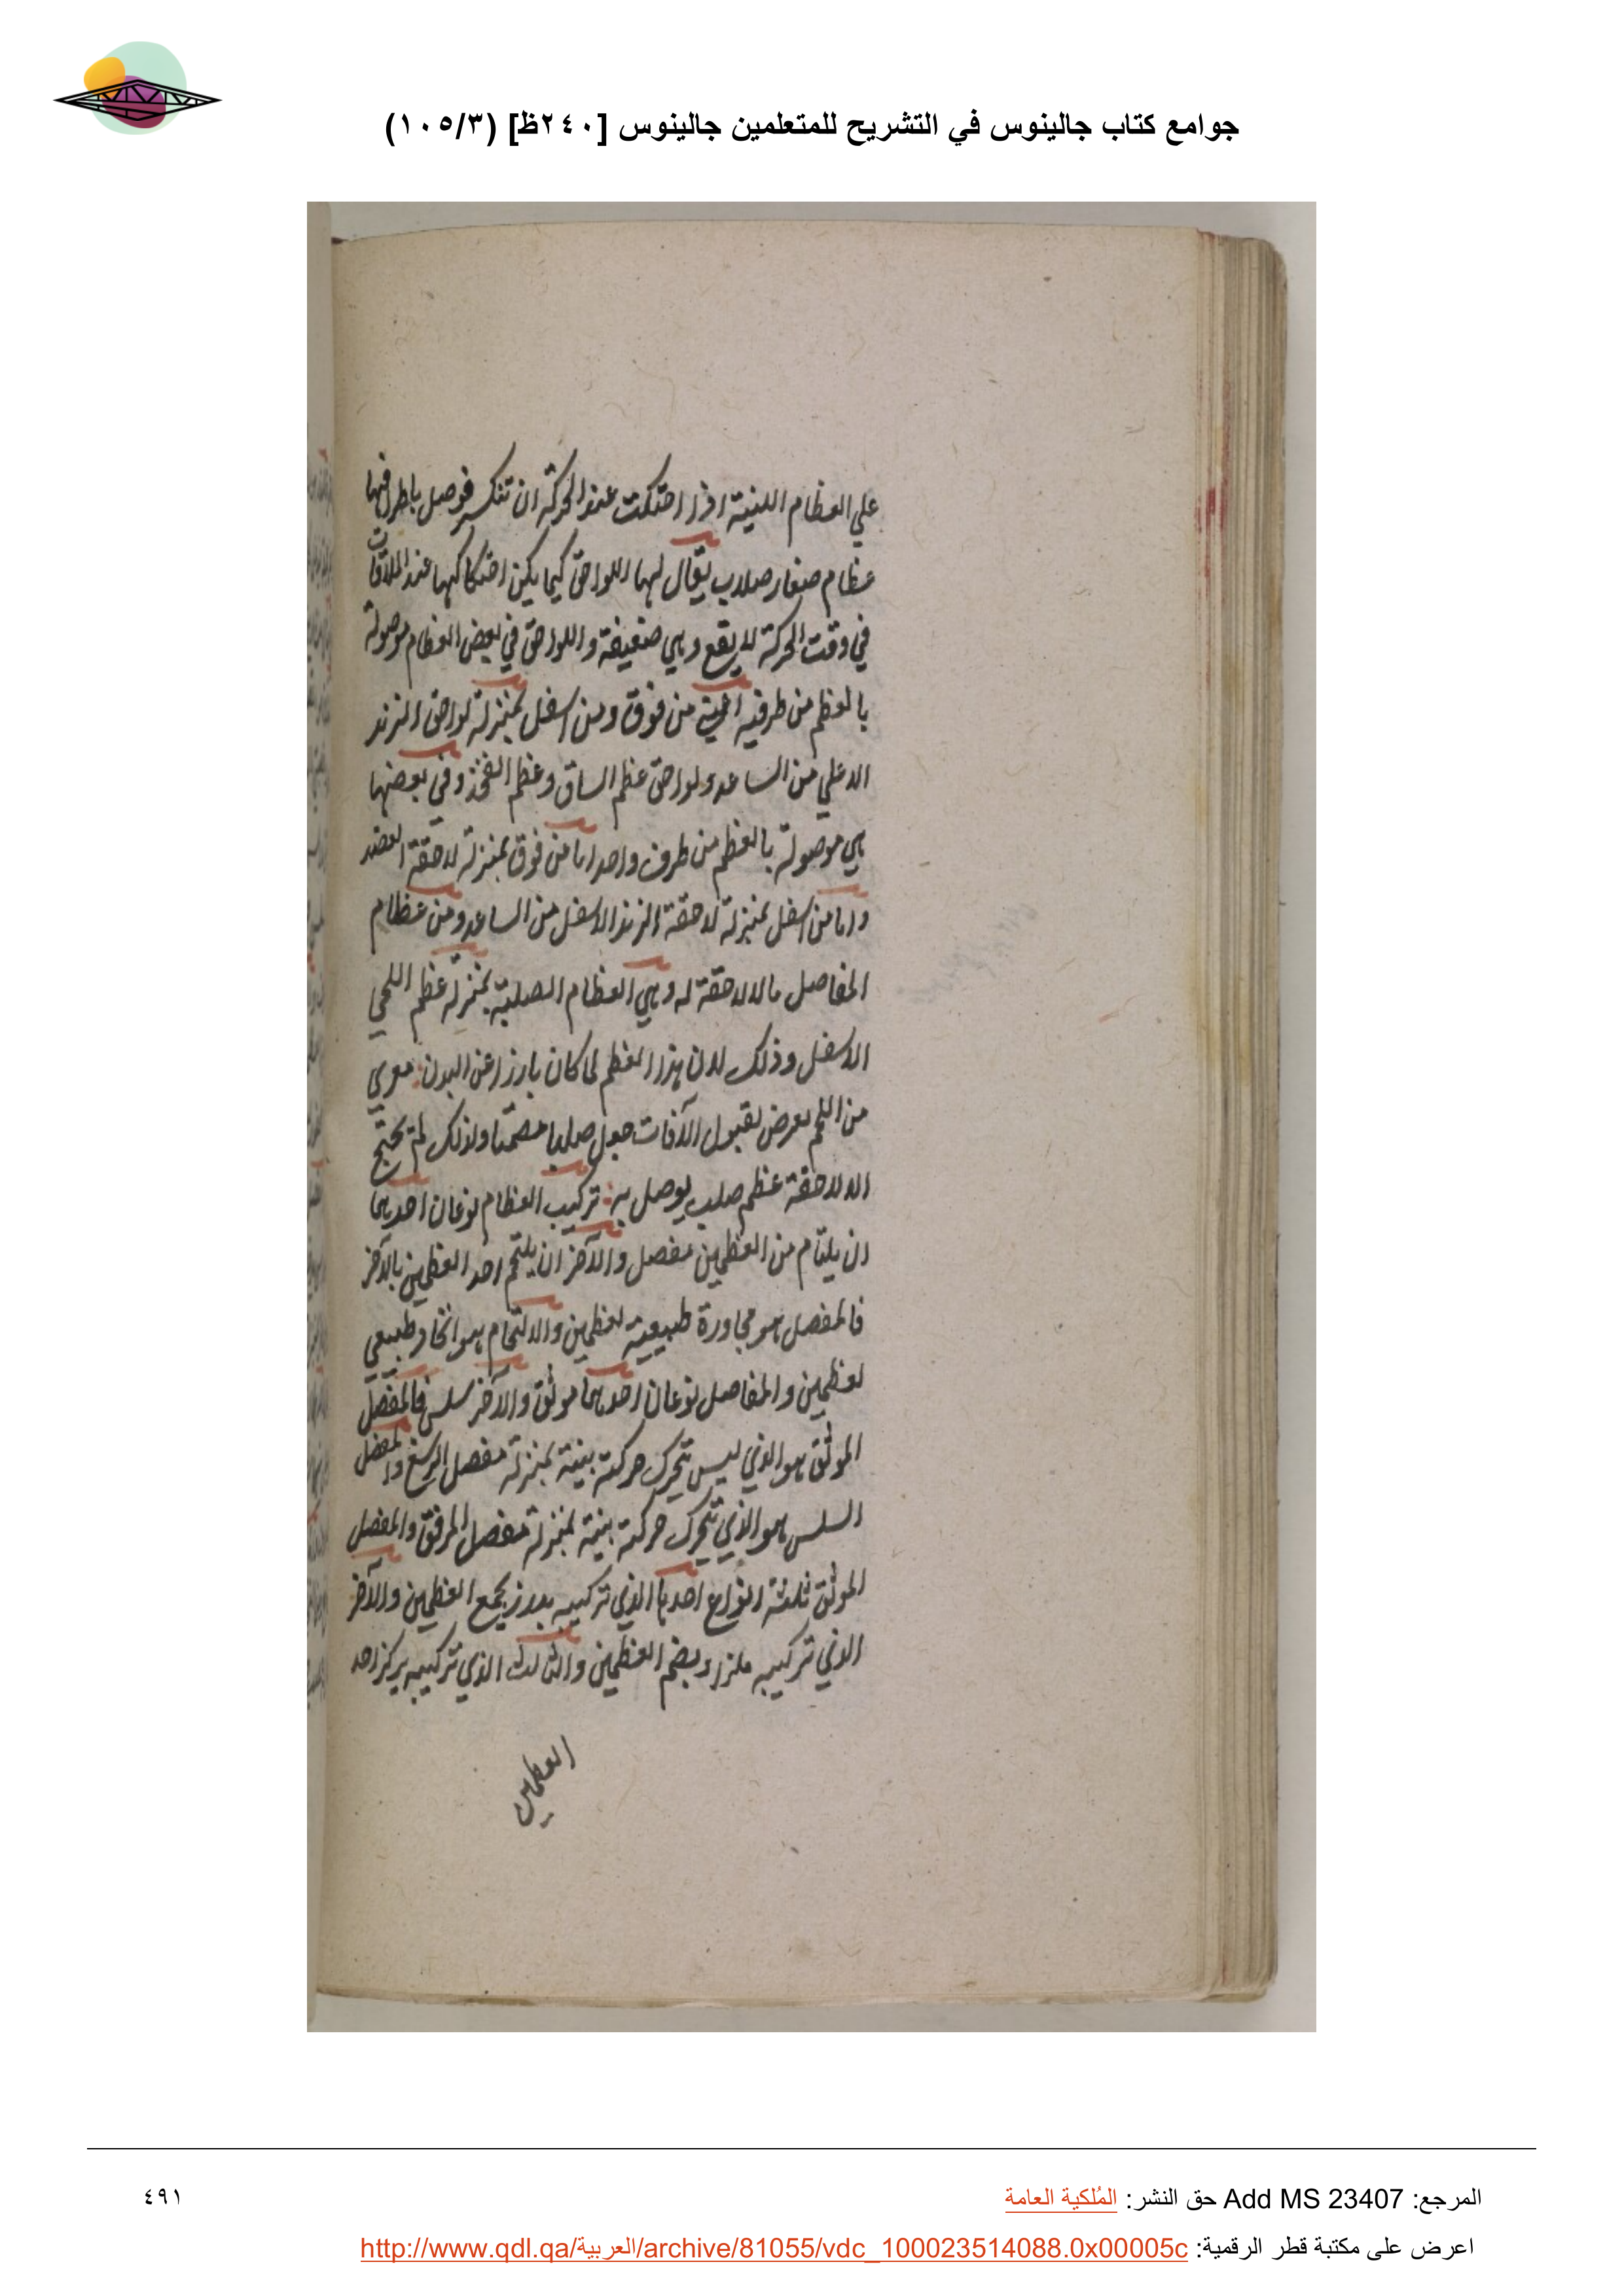 جوامع كتاب جالينوس في التشريح للمتعلمين جالينوس [٢٤٠ظ] (١٠٥/٣)
علي العظام اللينة اذا احتكت عند الحركة ان تنكسر فوصل باطرافها
عظام صغار صلاب يقال لها اللواحق كيما يكن احتكاكها عند الملاقات
في وقت الحركة لا يقع وهي ضعيفة واللواحق في بعض العظام موصولة
بالعظم من طرفيه اعني من فوق ومن اسفل بمنزلة لواحق الزند
الاعلي من الساعد ولواحق عظم الساق وعظم الفخذ وفي بعضها
هي موصولة بالعظم من طرف واحد اما من فوق بمنزلة لاحقة العضد
واما من اسفل بمنزلة لاحقة الزند الاسفل من الساعد ومن عظام
المفاصل ما لا لاحقة له وهي العظام الصلبة بمنزلة عظم اللحي
الاسفل وذلك لان هذا العظم لما كان بارزا عن البدن معري
من اللحم يعرض لقبول الآفات جعل صلبا مصمتا ولذلك لم يحتج
الا لاحقة عظم صلب يوصل به تركيب العظام نوعان احدهما
ان يلتام من العظمين مفصل والآخر ان يلتحم احد العظمين بالآخر
فالمفصل هو مجاورة طبيعية لعظمين والالتحام هو اتحاد طبيعي
لعظمين والمفاصل نوعان احدهما موثق والآخر سلس فالمفصل
الموثق هو الذي ليس تتحرك حركته بينة بمنزلة مفصل الرسغ والمفصل
السلس هو الذي تتحرك حركته بينة بمنزلة مفصل المرفق والمفصل
الموثق ثلثة انواع احدها الذي تركيبه بدرز يجمع العظمين والآخر
الذي تركيبه ملزاو يضم العظمين والثالث الذي تركيبه يركز احد
العظمين
المرجع: Add MS 23407 حق النشر: المُلكية العامة
٤٩١
اعرض على مكتبة قطر الرقمية: http://www.qdl.qa/العربية/archive/81055/vdc_100023514088.0x00005c